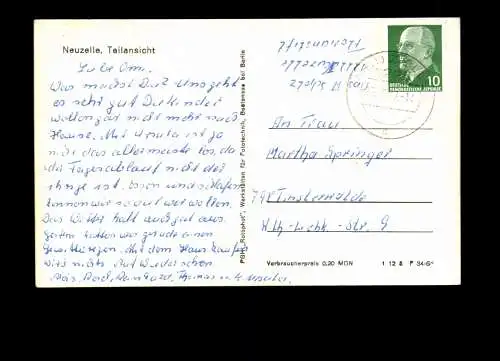 Neuzelle, Teilansicht
Liebe Omi.
Was machst Du? Uns geht
es sehr gut Die Kinder
wollen gar nicht mehr nach
Hause. Mit Ursula ist ja
nie das allermeiste los, da
der Tagesablauf nicht der
ist. Essen und schlafen
können wir soviel wir wollen.
Das Wetter hält auch gut aus.
Gestern hatten wir gerade einen
Gewitterregen. Mit dem Haus kaufen
wird nichts. Auf Wiedersehen
Thomas
PGH „Rotophot", Werkstätten für Fototechnik, Bestensee bei Berlin
Neuzelle
10
DEUTSCHE
DEMOKRATISCHE REPUBLIK
An Frau
Martha Springer
798 Finsterwalde
Str. 9
Verbraucherpreis 0,20 MDN
1 12 &